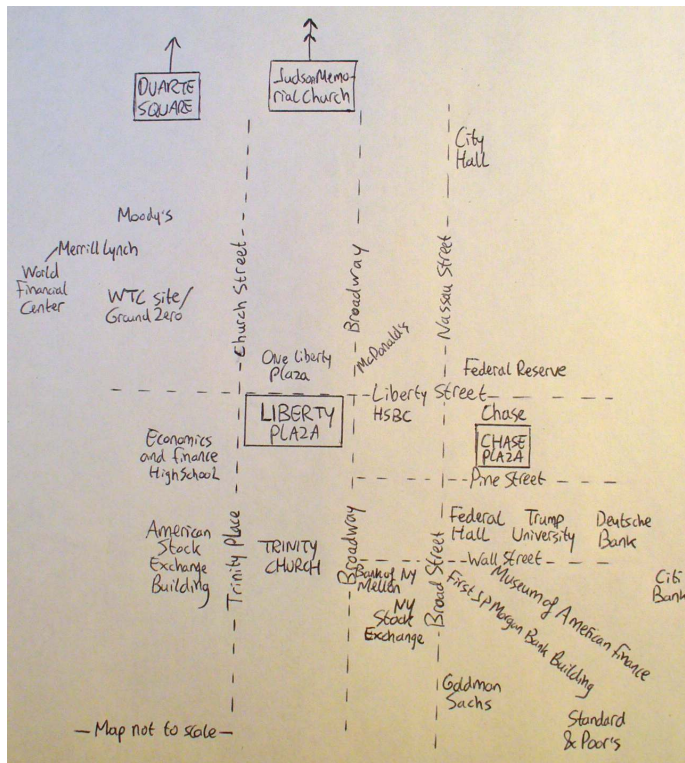 DUARTE
SQUARE
Judson Memo-
rial Church
City
Hall
Moody's
Merrill Lynch
World
Financial
Center
WTC site/
Ground Zero
Church Street
Broadway
Nassau Street
McDonald's
One Liberty
Plaza
Federal Reserve
Liberty Street
LIBERTY
PLAZA
HSBC
Chase
CHASE
PLAZA
Economics
and finance
High School
Pine Street
American
Stock
Exchange
Building
Trinity Place
TRINITY
CHURCH
Broadway
Broad Street
Federal
Hall
Trump
University
Deutsche
Bank
Wall Street
Bank of NY
Mellon
NY
Stock
Exchange
Museum of American Finance
First JP Morgan Bank Building
Citi
Bank
Goldman
Sachs
Standard
& Poor's
— Map not to scale —